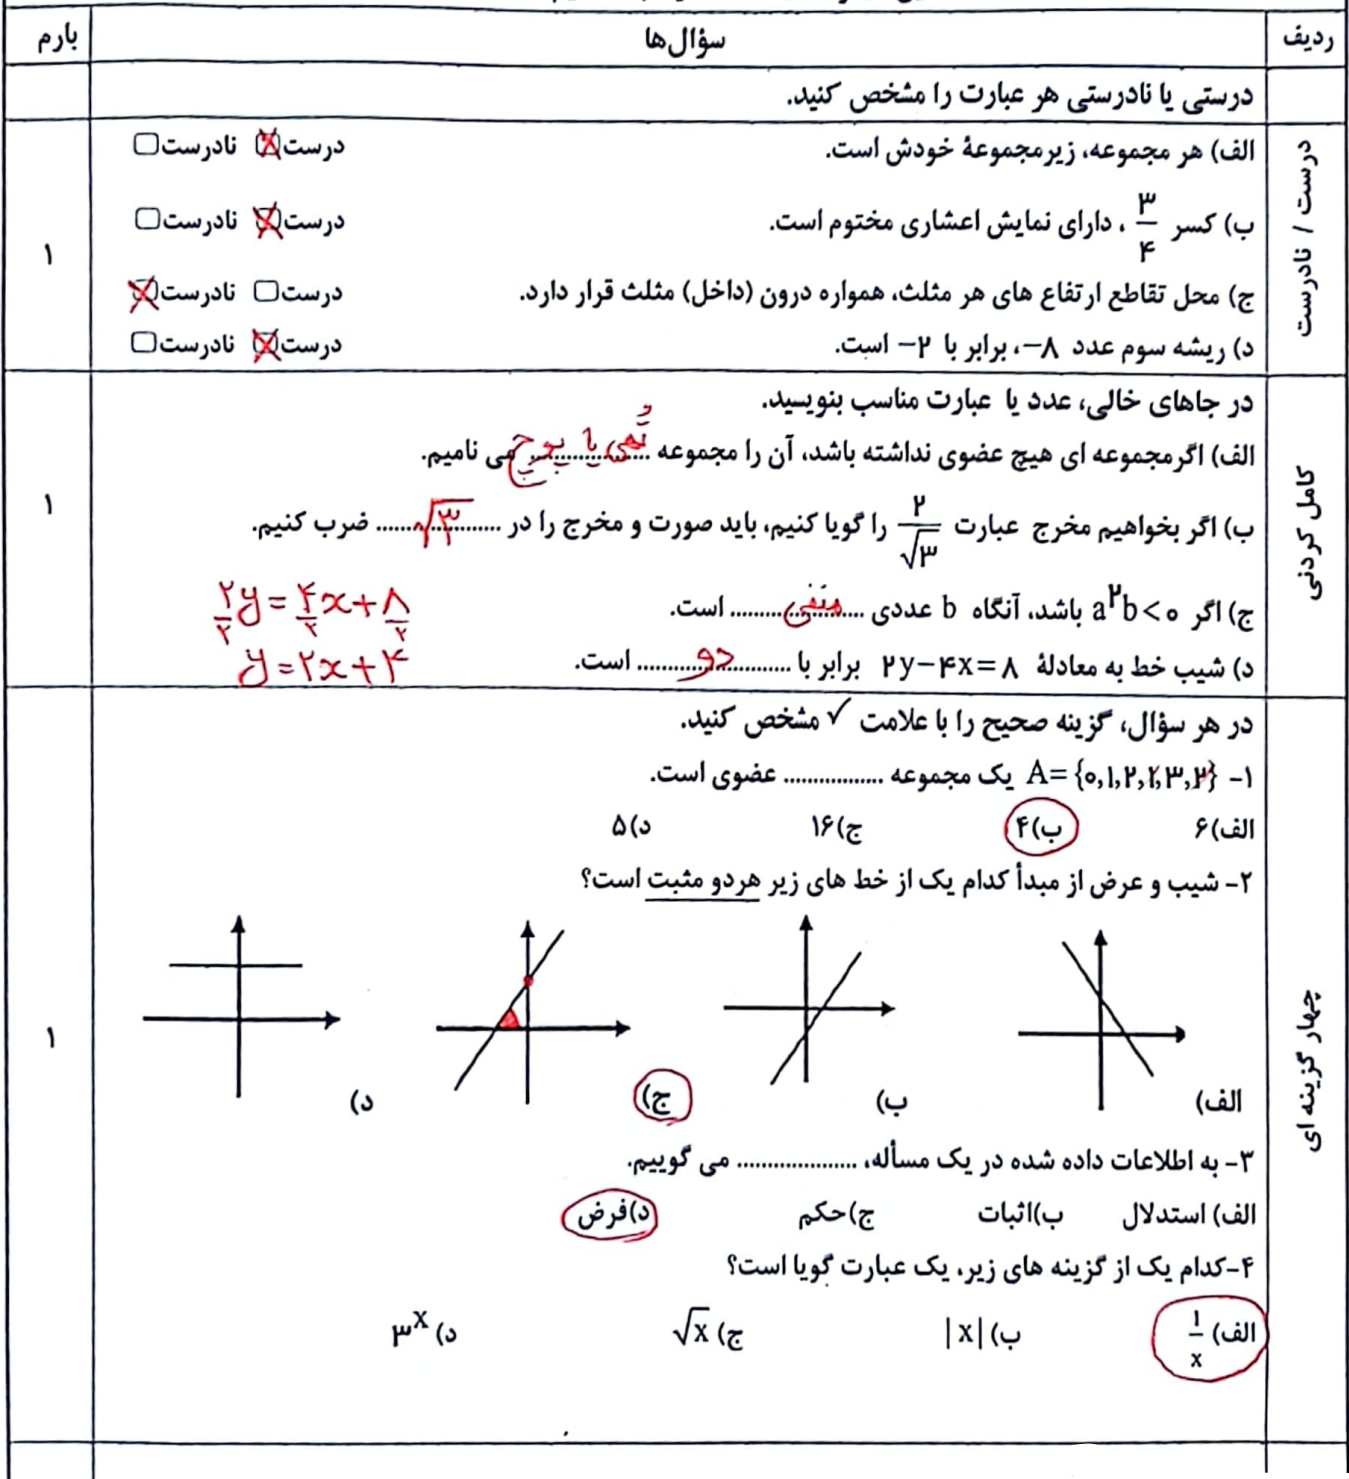 ردیف سؤال‌ها بارم
درستی یا نادرستی هر عبارت را مشخص کنید.
درست / نادرست
الف) هر مجموعه، زیرمجموعهٔ خودش است. درست نادرست
ب) کسر ۳/۴ ، دارای نمایش اعشاری مختوم است. درست نادرست
۱
ج) محل تقاطع ارتفاع های هر مثلث، همواره درون (داخل) مثلث قرار دارد. درست نادرست
د) ریشه سوم عدد ۸−، برابر با ۲− است. درست نادرست
کامل کردنی
در جاهای خالی، عدد یا عبارت مناسب بنویسید.
الف) اگرمجموعه ای هیچ عضوی نداشته باشد، آن را مجموعه تُهی یا پوچ می نامیم.
۱
ب) اگر بخواهیم مخرج عبارت ۲/√۳ را گویا کنیم، باید صورت و مخرج را در ........√۳........ ضرب کنیم.
ج) اگر a²b<۰ باشد، آنگاه b عددی ........منفی........ است.
۲y/۲ = ۴x/۲ + ۸/۲
د) شیب خط به معادلهٔ ۲y−۴x=۸ برابر با ........دو........ است.
y=۲x+۴
چهار گزینه ای
در هر سؤال، گزینه صحیح را با علامت ✓ مشخص کنید.
۱- A={۰,۱,۲,۲,۳,۲} یک مجموعه ................ عضوی است.
الف)۶ ب)۴ ج)۱۶ د)۵
۲- شیب و عرض از مبدأ کدام یک از خط های زیر هردو مثبت است؟
۱
الف) ب) ج) د)
۳- به اطلاعات داده شده در یک مسأله، .................... می گوییم.
الف) استدلال ب)اثبات ج)حکم د)فرض
۴-کدام یک از گزینه های زیر، یک عبارت گویا است؟
الف) ۱/x ب) |x| ج) √x د) ۳ˣ